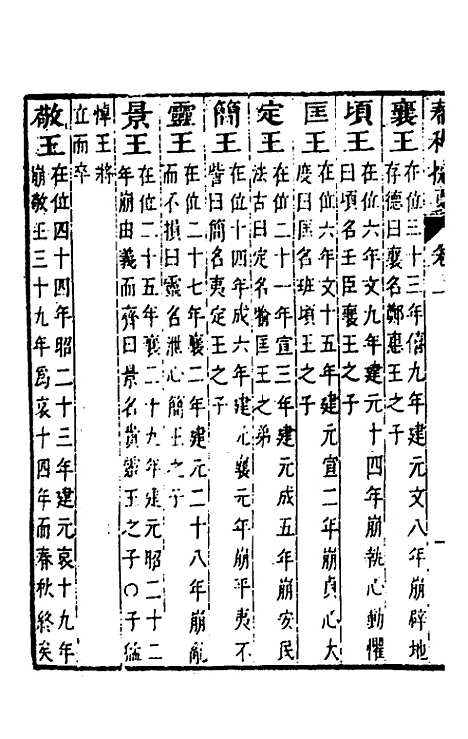 襄王 在位三十三年僖九年建元文八年崩辟地
存德曰襄名鄭惠王之子
頃王 在位六年文九年建元十四年崩執心動懼
曰頃名壬臣襄王之子
匡王 在位六年文十五年建元宣二年崩貞心大
度曰匡名班頃王之子
定王 在位二十一年宣三年建元成五年崩安民
法古曰定名瑜匡王之弟
簡王 在位十四年成六年建元襄元年崩平夷不
訾曰簡名夷定王之子
靈王 在位二十七年襄二年建元二十八年崩亂
而不損曰靈名泄心簡王之子
景王 在位二十五年襄二十九年建元昭二十二
年崩由義而齊曰景名貴靈王之子○子猛
悼王將
立而卒
敬王 在位四十四年昭二十三年建元哀十九年
崩敬王三十九年爲哀十四年而春秋終矣